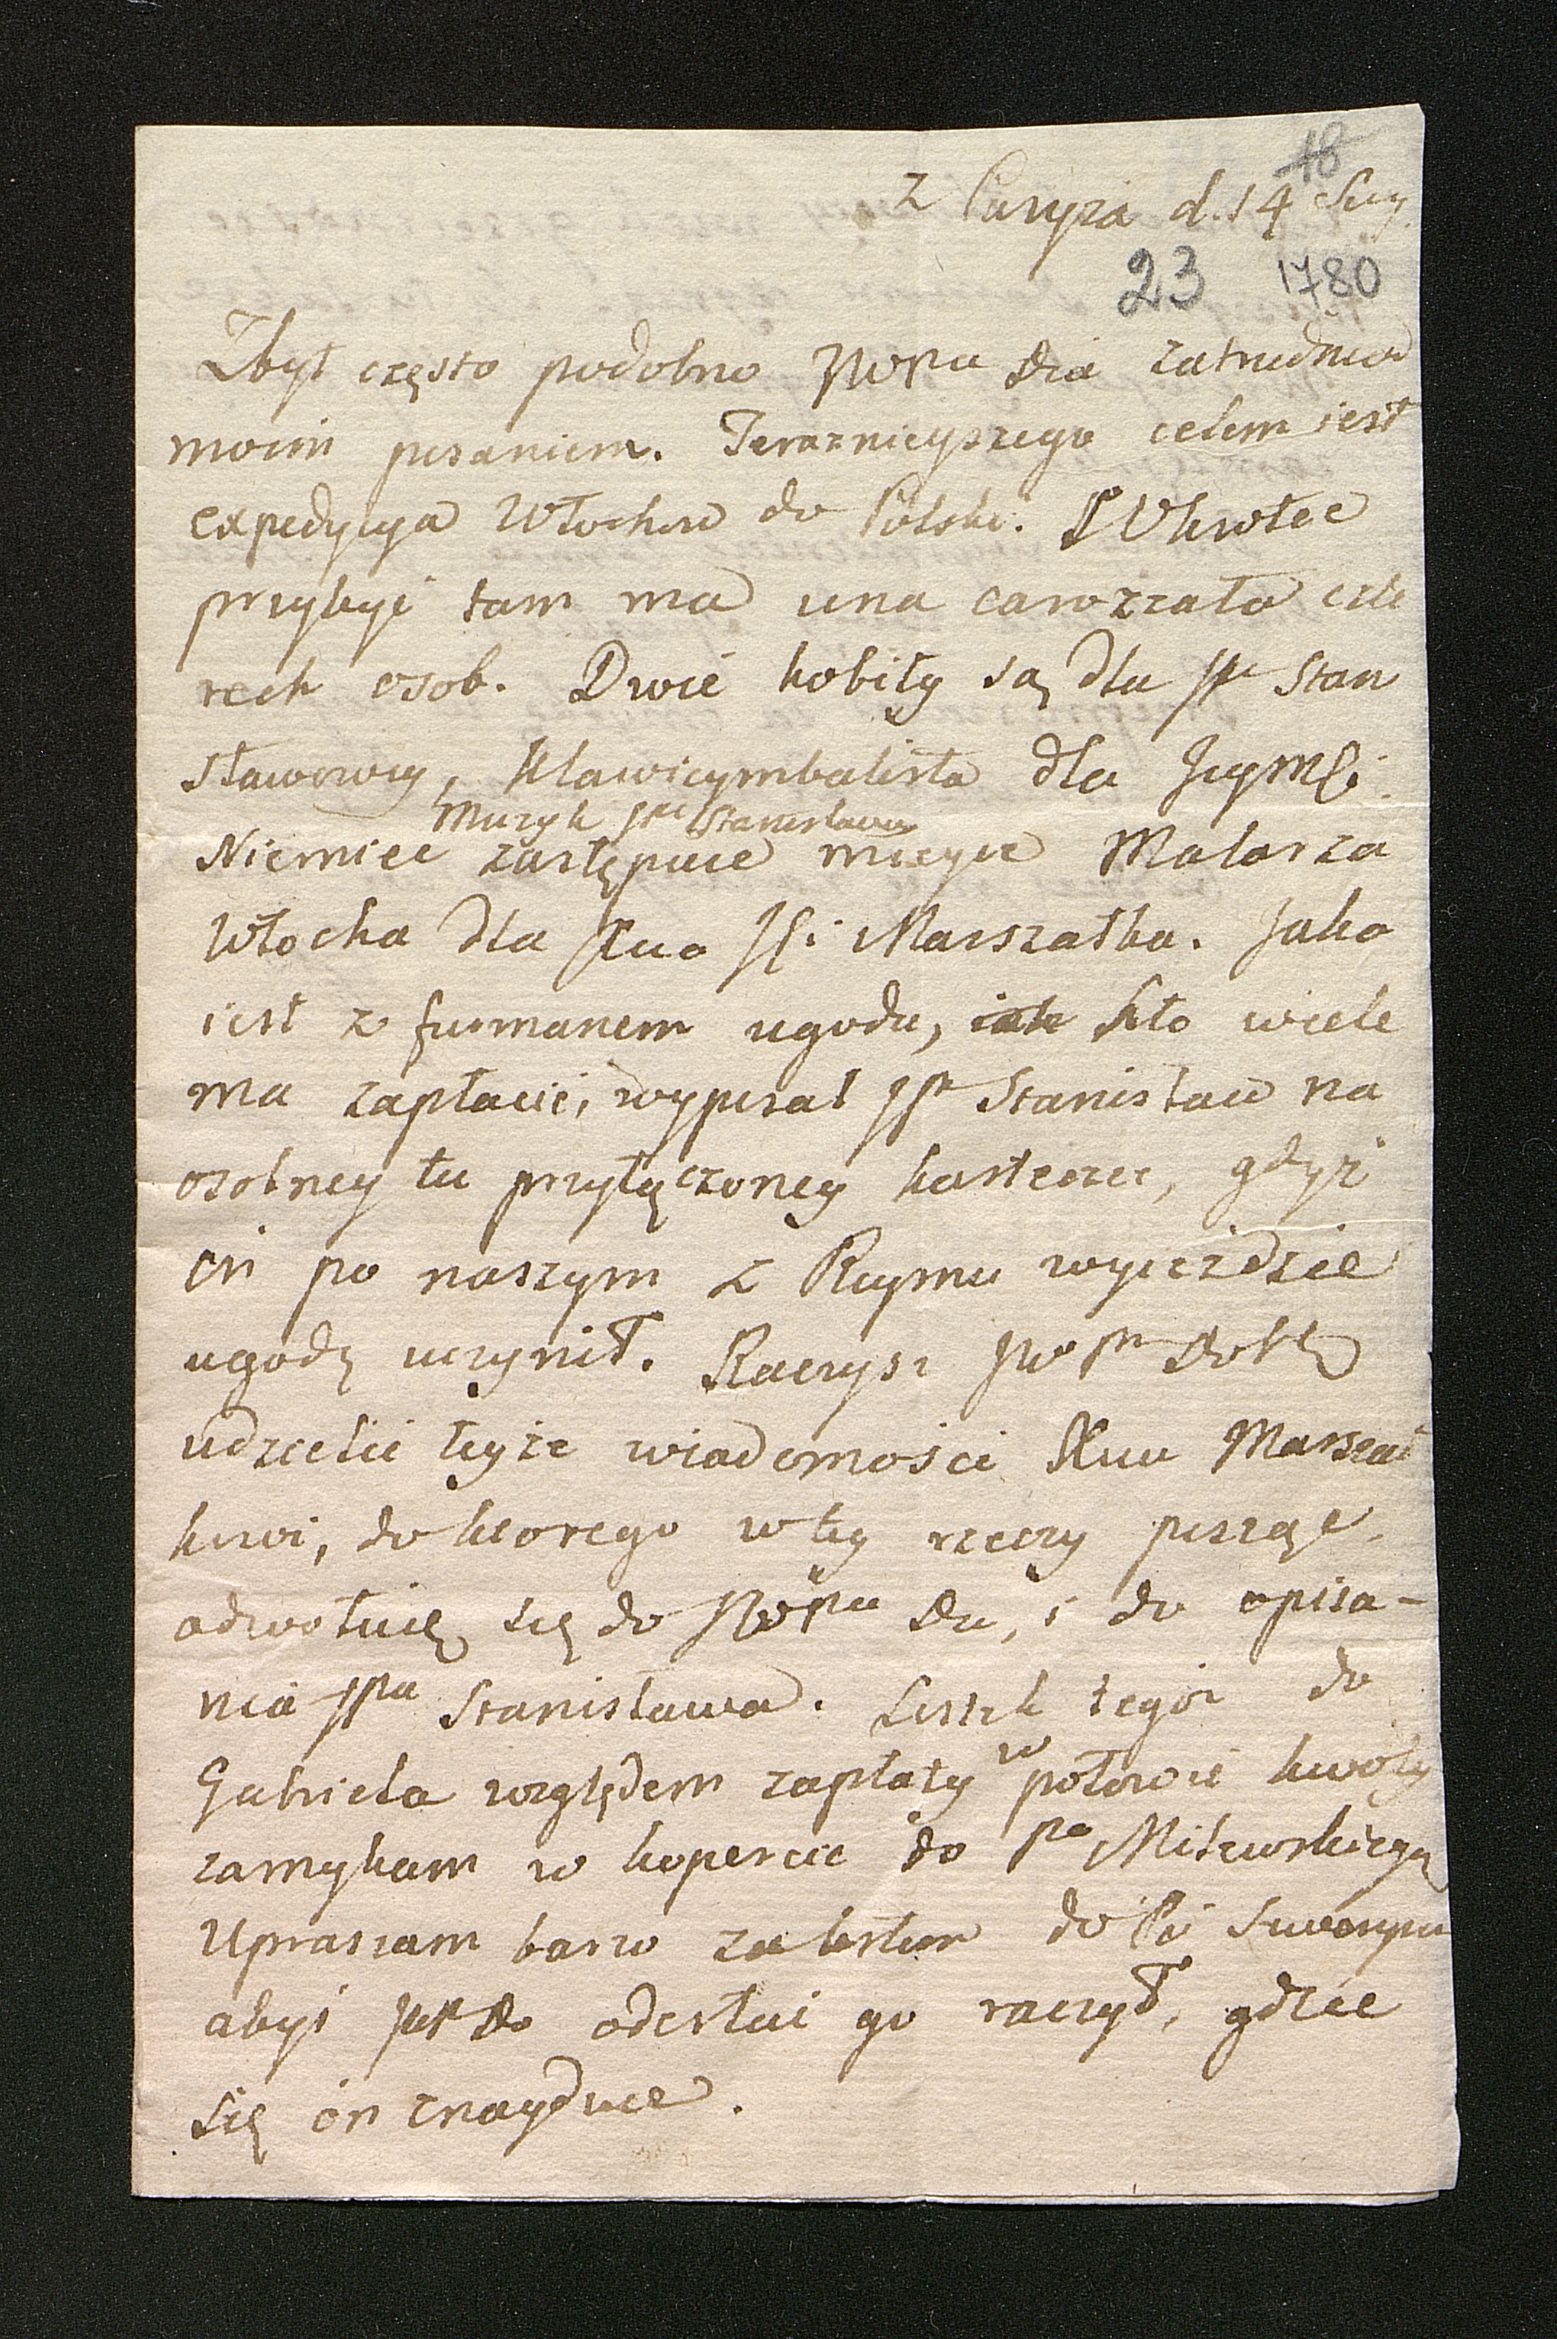 18
z Paryża d. 14 Aug.
23 1780
Zbyt często podobno JWPu Dia zatrudniad
moim pisaniem. Teraznieyszego celem iest
expedycya Włochow do Polski. Wkrotce
przybyć tam ma una carozzata czte
rech osob. Dwie kobity są dla JPi Stani
sławowy, Klawicymbalista dla Jeymści
Muzyk JPa Stanisława
Niemiec zastępuie mieysce Malarza
Włocha dla Xcia Jści Marszałka. Jaka
iest z furmanem ugoda, iak kto wiele
ma zapłacić, wypisał JP Stanisław na
osobney tu przyłączoney karteczce, gdyż
on po naszym z Rzymu wyieździe
ugodę uczynił. Raczysz JWPn Dobr
udzielić teyże wiadomości Xciu Marszał
kowi, do ktorego w tey rzeczy piszące
odwołuię się do JWPna Da, i do opisa-
nia JPa Stanisława. Listek tegoż do
Gabriela względem zapłaty w połowie kwoty
zamykam w kopercie do Pa Milewskiego
Upraszam barzo za listem do Pa
abyś odesłać go raczył, gdzie
się on znayduie.